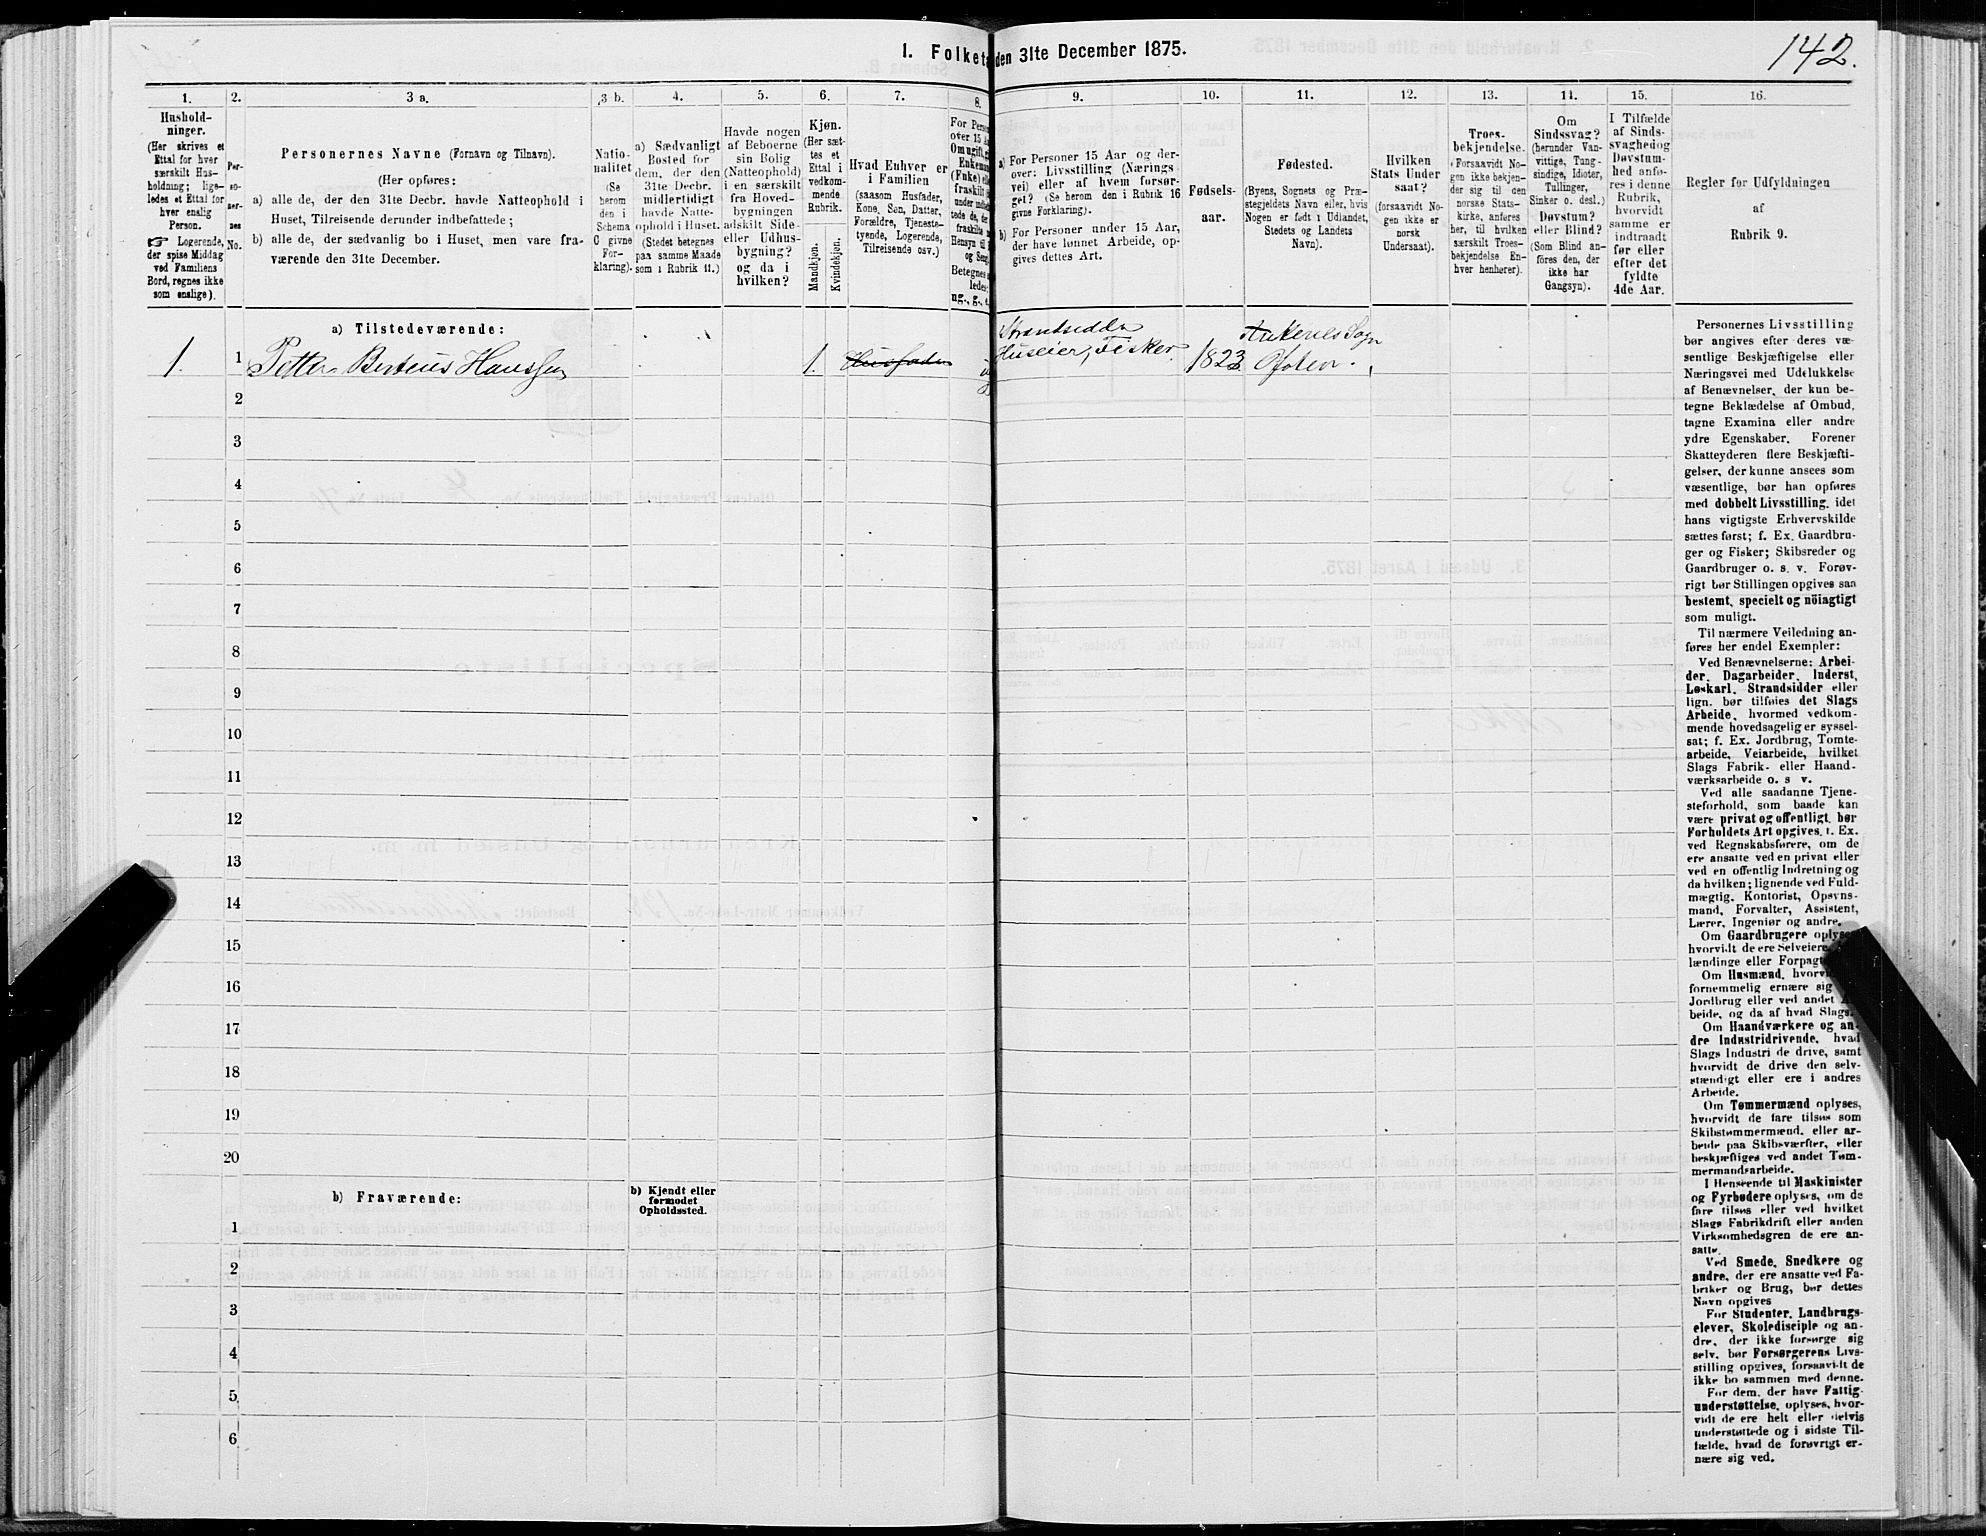 142.
1. Folketæ
den 31te December 1875.
1.
2.
3 a.
3 b.
4.
5.
6.
7.
8.
9.
10.
11.
12.
13.
14.
15.
16.
Hushold-
ninger.
(Her skrives et
Ettal for hver
særskilt Hus-
holdning; lige-
ledes et Ettal for
hver enslig
Person.
☞ Logerende,
der spise Middag
ved Familiens
Bord, regnes ikke
som enslige).
Per-
so-
ner-
nes
No.
Personernes Navne (Fornavn og Tilnavn).
(Her opføres:
a) alle de, der den 31te Decbr. havde Natteophold i
Huset, Tilreisende derunder indbefattede;
b) alle de, der sædvanlig bo i Huset, men vare fra-
værende den 31te December.
Natio-
nalitet
(Se
herom
den i
Schema
C givne
For-
klaring).
a) Sædvanligt
Bosted for
dem, der den
31te Decbr.
midlertidigt
havde Natte-
ophold i Huset.
(Stedet betegnes
paa samme Maade
som i Rubrik 11.)
Havde nogen
af Beboerne
sin Bolig
(Natteophold)
i en særskilt
fra Hoved-
bygningen
adskilt Side-
eller Udhus-
bygning?
og da i
hvilken?
Kjøn.
(Her sæt-
tes et
Ettal i
vedkom-
mende
Rubrik.
Mandkjøn.
Kvindekjøn.
Hvad Enhver er
i Familien
(saasom Husfader,
Kone, Søn, Datter,
Forældre, Tjeneste-
tyende, Logerende,
Tilreisende osv.)
For Perso
over 15 Aa
Om ugift, g
Enkeman
(Enke) ell
fraskilt
Hensyn til
og Seng
Betegnes
ledes:
ug., g., e.
a) For Personer 15 Aar og der-
over: Livsstilling (Nærings
vei) eller af hvem forsør-
get? (Se herom den i Rubrik 16
givne Forklaring).
b) For Personer under 15 Aar,
der have lønnet Arbeide, op-
gives dettes Art.
Fødsels-
aar.
Fødested.
(Byens, Sognets og Præ-
stegjeldets Navn eller, hvis
Nogen er født i Udlandet,
Stedets og Landets
Navn).
Hvilken
Stats Under
saat?
(forsaavidt No-
gen ikke er
norsk
Undersaat).
Troes-
bekjendelse.
(Forsaavidt No-
gen ikke bekjen-
der sig til den
norske Stats-
kirke, anføres
her, til hvilken
særskilt Troes-
bekjendelse En-
hver henhører).
Om
Sindssvag?
(herunder Van-
vittige, Tung-
sindige, Idioter,
Tullinger,
Sinker o. desl.)
Døvstum?
eller Blind?
(Som Blind an-
føres den, der
ikke har
Gangsyn).
I Tilfælde
af Sinds-
svaghed og
Døvstum-
hed anfø-
res i denne
Rubrik,
hvorvidt
samme er
indtraadt
før eller
efter det
fyldte
4de Aar.
Regler for Udfyldningen
af
Rubrik 9.
a) Tilstedeværende:
Strandsidder
Ankenes Sogn
1. 1 Petter Berteus Hanssen 1. Husfader ug Huseier, Fisker 1823 Ofoten.
2
3
4
5
6
7
8
9
10
11
12
13
14
15
16
17
18
19
20
b) Fraværende:
b) Kjendt eller
formodet
Opholdssted.
1
2
3
4
5
6
Personernes Livsstilling
bør angives efter deres væ-
sentlige Beskjæftigelse eller
Næringsvei med Udelukkelse
af Benævnelser, der kun be-
tegne Beklædelse af Ombud,
tagne Examina eller andre
ydre Egenskaber. Forener
Skatteyderen flere Beskjæfti-
gelser, der kunne ansees som
væsentlige, bør han opføres
med dobbelt Livsstilling, idet
hans vigtigste Erhvervskilde
sættes først; f. Ex. Gaardbru-
ger og Fisker; Skibsreder og
Gaardbruger o. s. v. Forøv-
rigt bør Stillingen opgives saa
bestemt, specielt og nöiagtigt
som muligt.
Til nærmere Veiledning an-
føres her endel Exempler:
Ved Benævnelserne: Arbei-
der, Dagarbeider, Inderst,
Løskarl, Strandsidder eller
lign. bør tilføies det Slags
Arbeide, hvormed vedkom-
mende hovedsagelig er syssel-
sat; f. Ex. Jordbrug, Tomte-
arbeide, Veiarbeide, hvilket
Slags Fabrik- eller Haand-
værksarbeide o. s v.
Ved alle saadanne Tjene-
steforhold, som baade kan
være privat og offentligt, bør
Forholdets Art opgives, t. Ex.
ved Regnskabsførere, om de
ere ansatte ved en privat eller
ved en offentlig Indretning og
da hvilken; lignende ved Fuld-
mægtig, Kontorist, Opsyns-
mand, Forvalter, Assistent,
Lærer, Ingeniør og andre.
Om Gaardbrugere oplyses,
hvorvidt de ere Selveiere,
lændinge eller Forpagt
Om Husmænd, hvorvi
fornemmelig ernære sig
Jordbrug eller ved andet A
beide, og da af hvad Slags.
Om Haandværkere og an-
dre Industridrivende, hvad
Slags Industri de drive, samt
hvorvidt de drive den selv-
stændigt eller ere i andres
Arbeide.
Om Tømmermænd oplyses,
hvorvidt de fare tilsøs som
Skibstømmermænd, eller ar-
beide paa Skibsværfter, eller
beskjæftiges ved andet Tøm-
mermandsarbeide.
I Henseende til Maskinister
og Fyrbødere oplyses, om de
fare tilsøs eller ved hvilket
Slags Fabrikdrift eller anden
Virksomhedsgren de ere an-
satte.
Ved Smede, Snedkere og
andre, der ere ansatte ved Fa-
briker og Brug, bør dettes
Navn opgives
For Studenter, Landbrugs-
elever, Skoledisciple og an-
dre, der ikke forsørge sig
selv, bør Forsørgerens Livs-
stilling opgives, forsaavidt de
ikke bo sammen med denne.
For dem, der have Fattig-
understøttelse, oplyses, hvor-
vidt de ere helt eller delvis
understøttede og i sidste Til-
fælde, hvad de forøvrigt er-
nære sig ved.